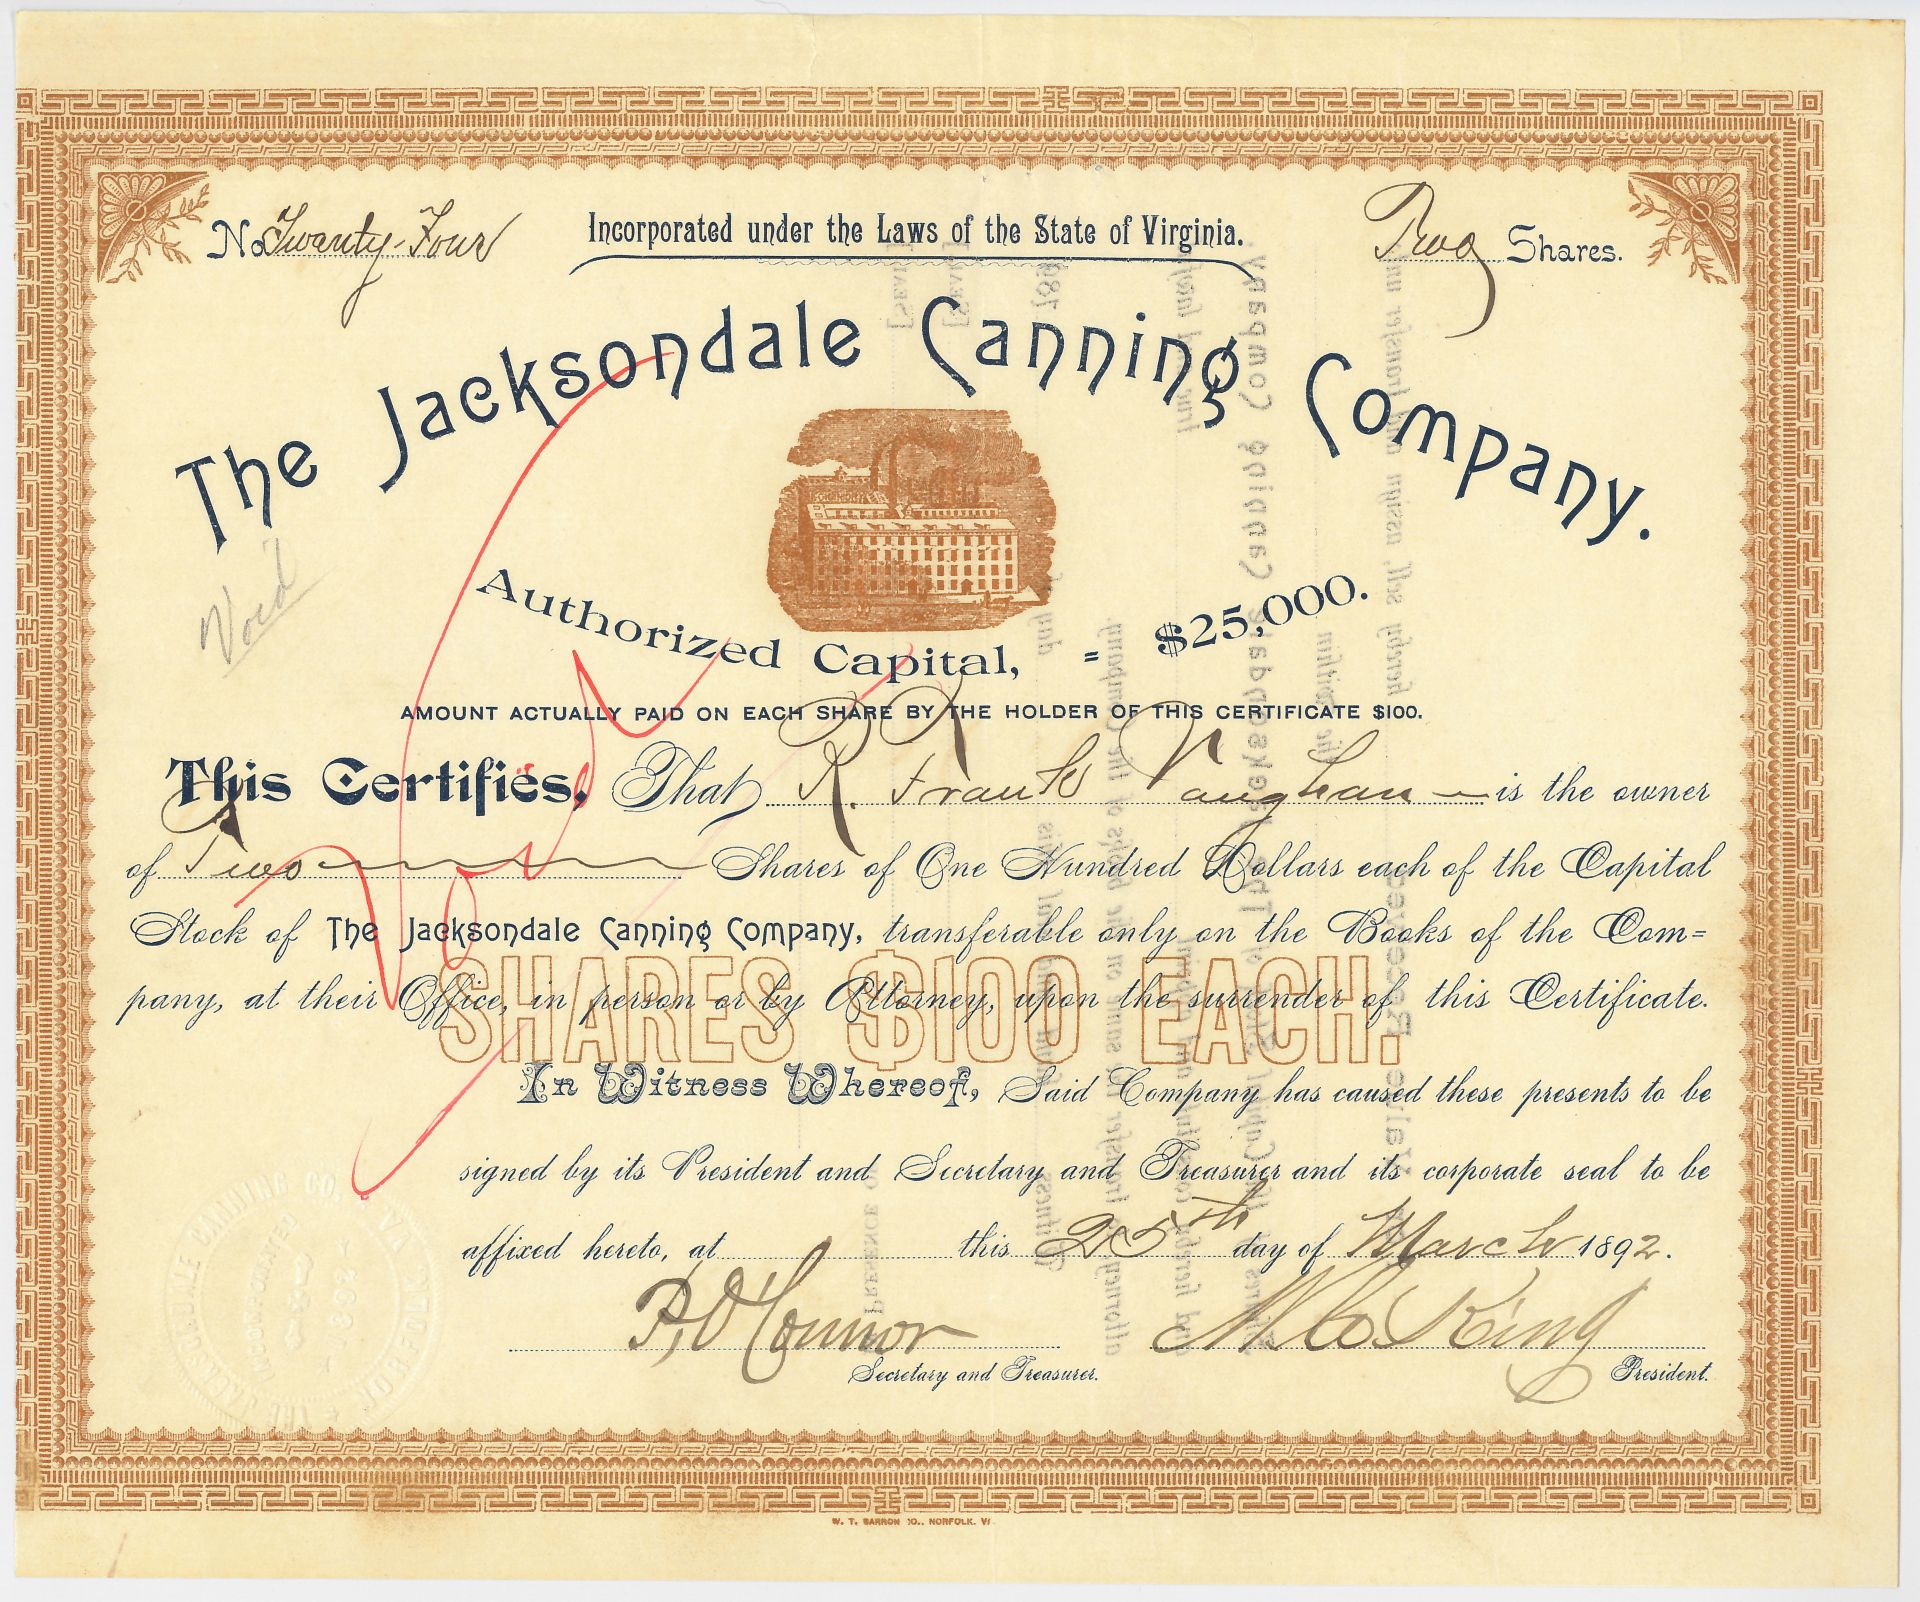 No. Twenty-Four
Incorporated under the Laws of the State of Virginia.
Two Shares.
The Jacksondale Canning Company.
Void
Authorized Capital, = $25,000.
AMOUNT ACTUALLY PAID ON EACH SHARE BY THE HOLDER OF THIS CERTIFICATE $100.
This Certifies, That R. Frank Vaughan is the owner
of Two Shares of One Hundred Dollars each of the Capital
Void
Stock of The Jacksondale Canning Company, transferable only on the Books of the Com=
pany, at their Office, in person or by Attorney, upon the surrender of this Certificate.
SHARES $100 EACH.
In Witness Whereof, Said Company has caused these presents to be
signed by its President and Secretary and Treasurer and its corporate seal to be
affixed hereto, at this 25th day of March 1892.
P. O'Connor King
Secretary and Treasurer. President.
THE JACKSONDALE CANNING CO.
INCORPORATED
W. T. BARRON CO., NORFOLK, VA.